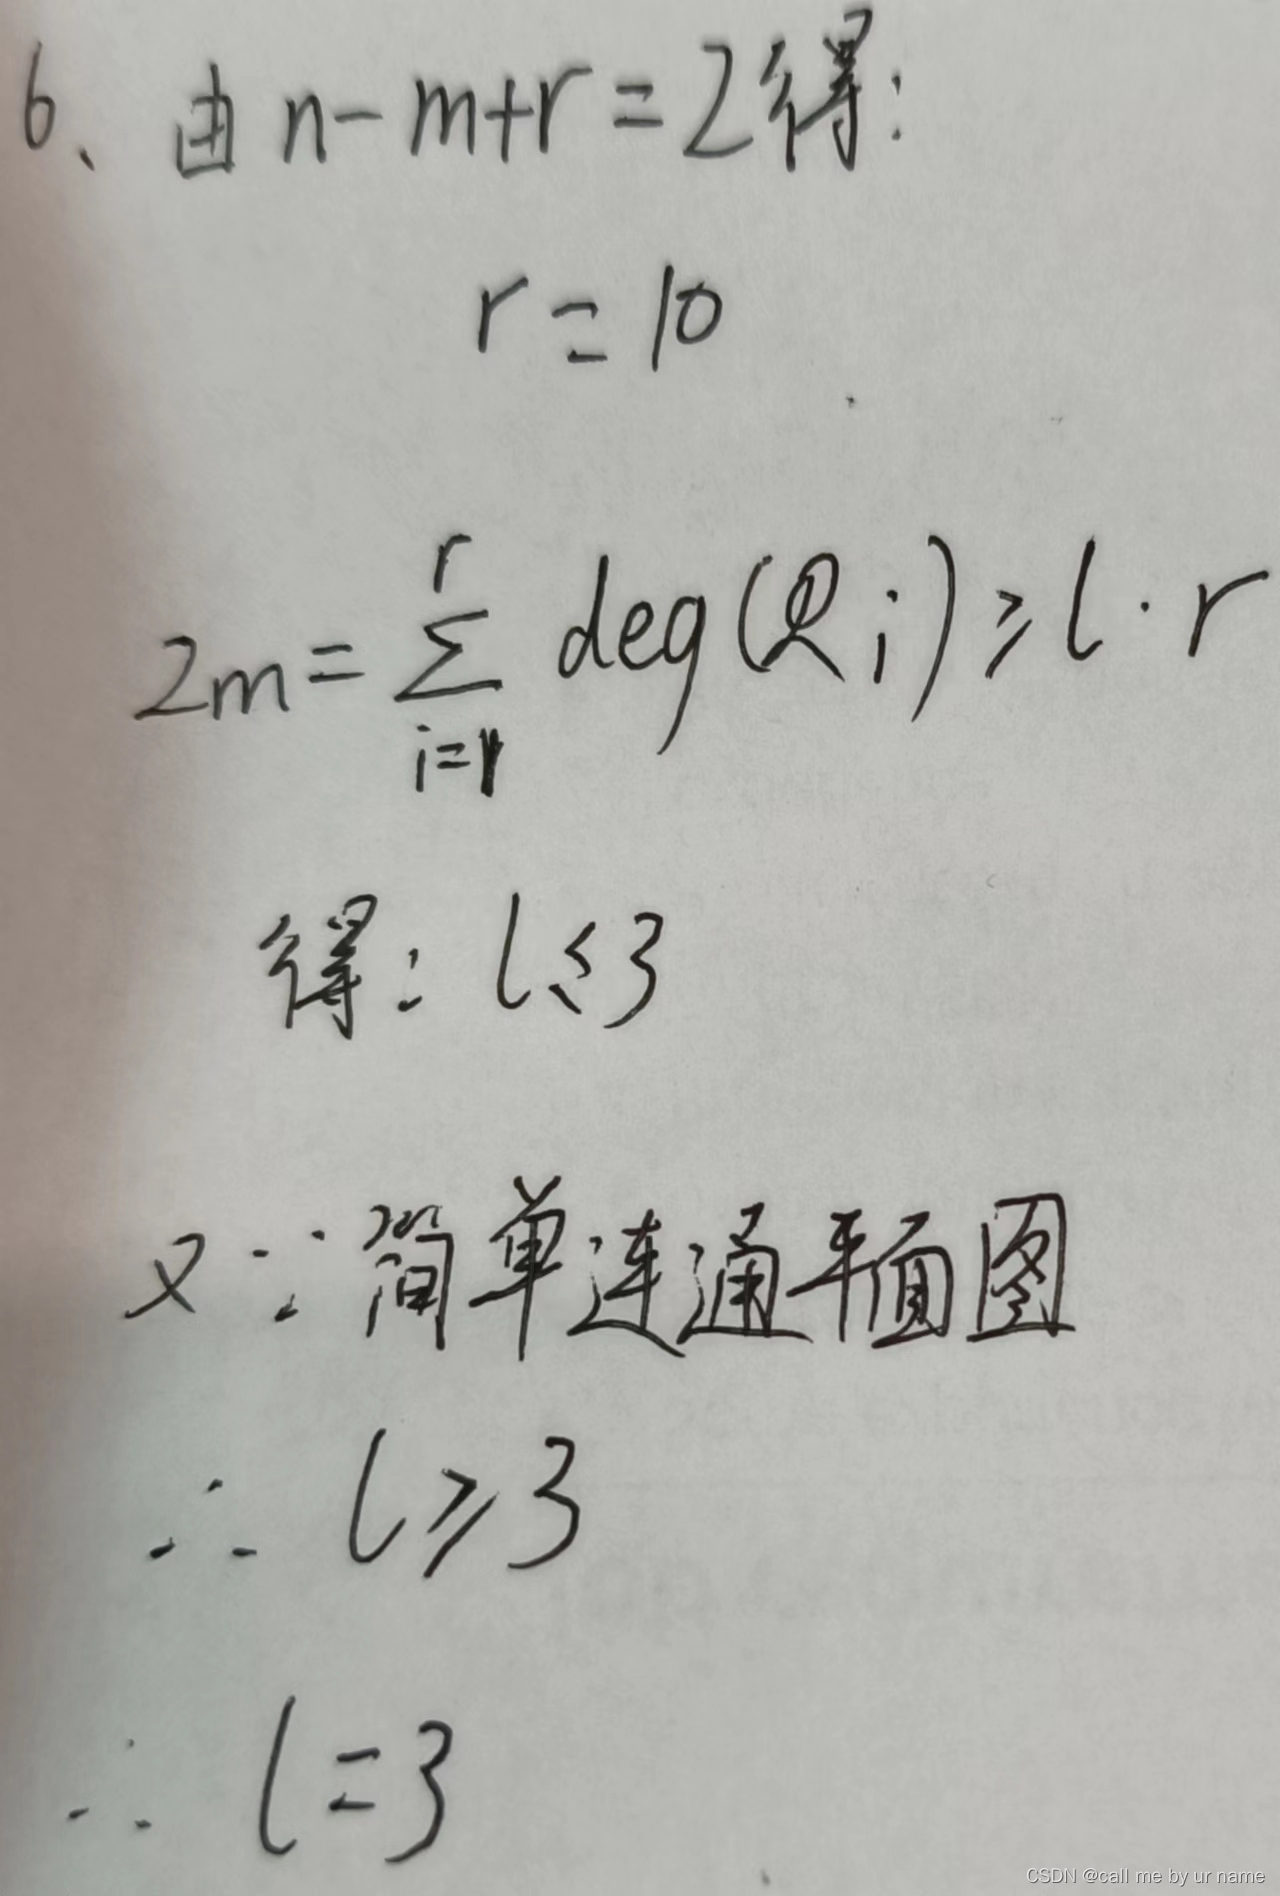 6、由 n-m+r=2得:
r=10
2m=∑_{i=1}^{r} deg(Ri)≥l·r
得:l≤3
又∵简单连通平面图
∴ l≥3
∴ l=3
CSDN @call me by ur name